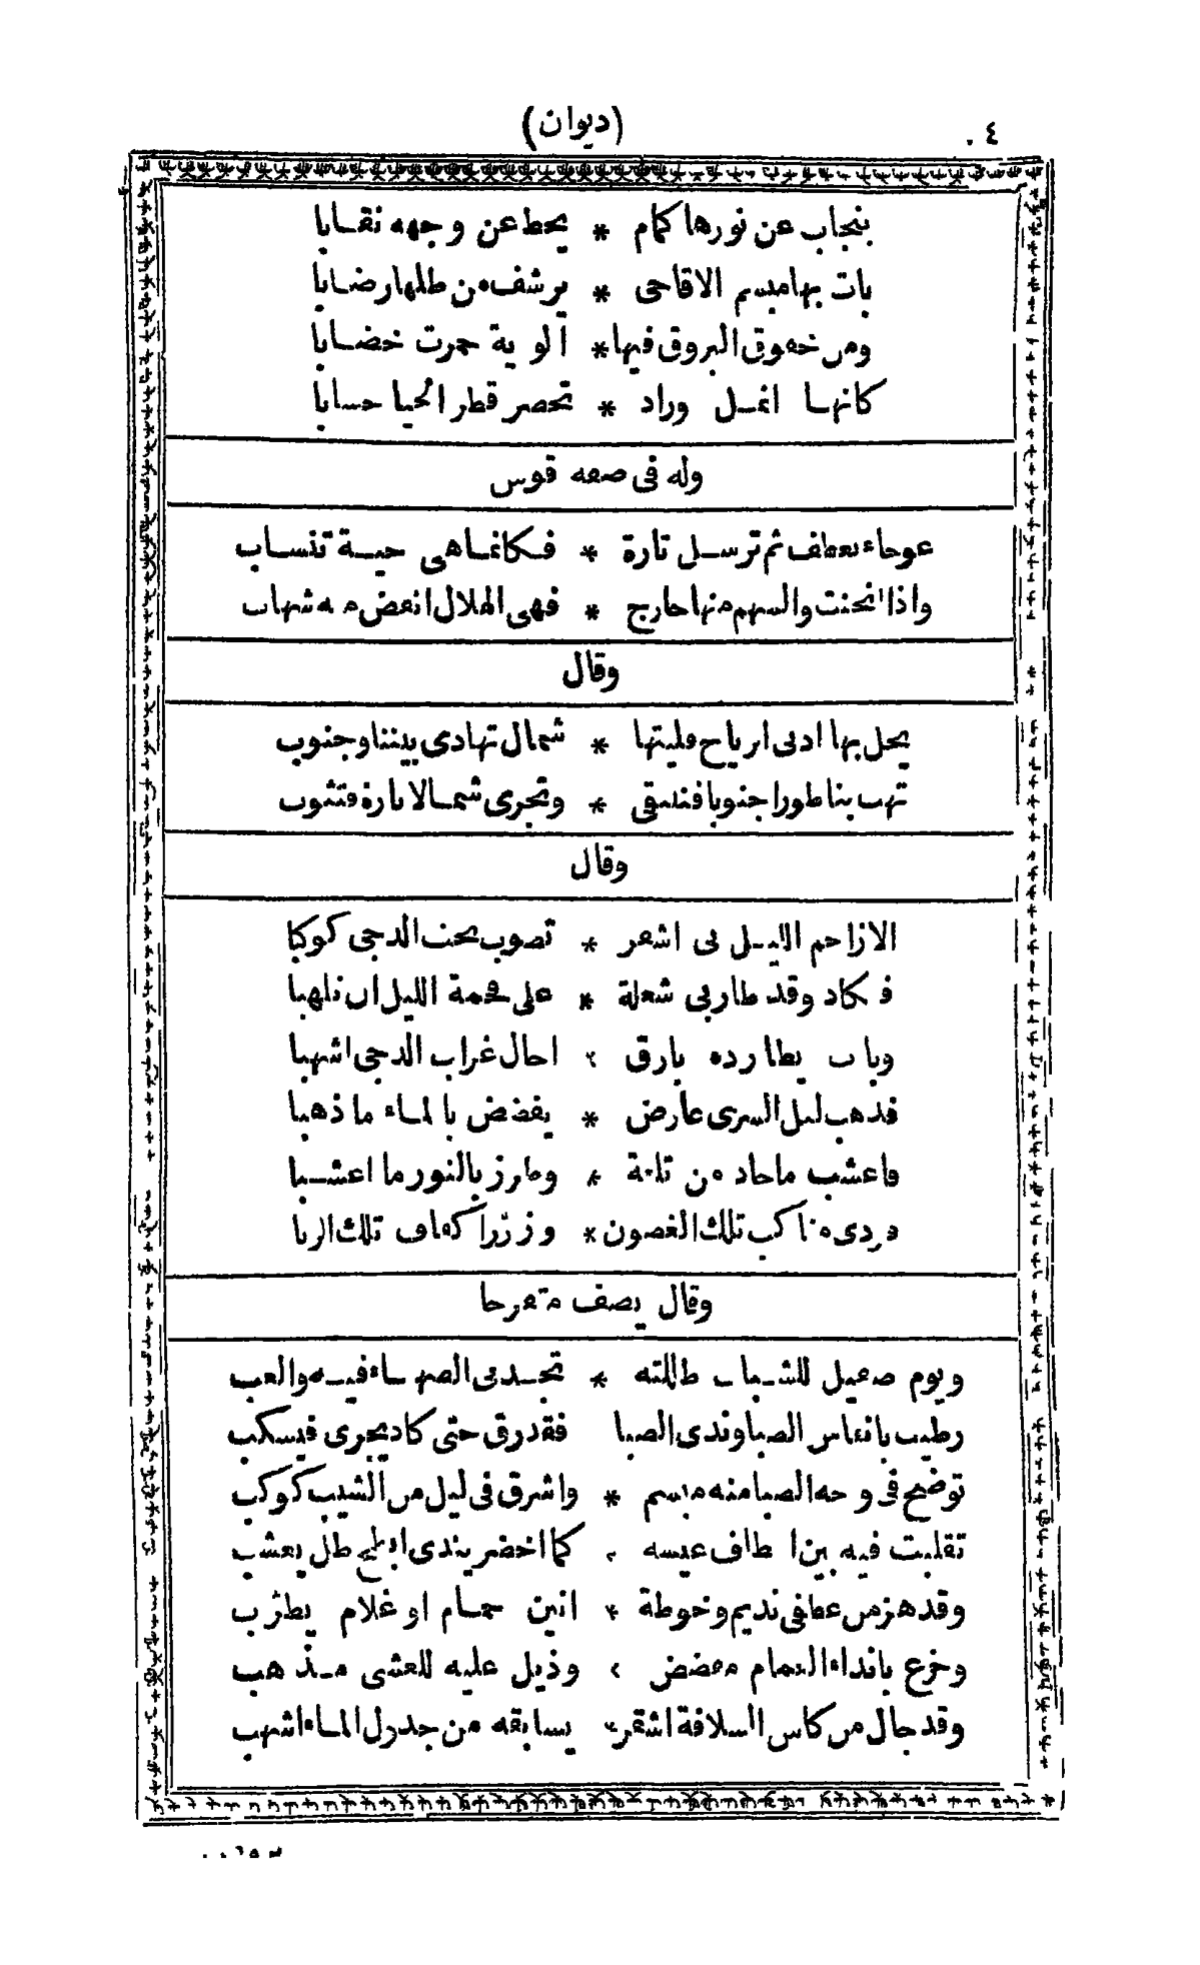 (ديوان) ٤
ينجاب عن نورها كمام * يحط عن وجهه نقابا
بات بها مبسم الاقاحى * يرشف من طلها رضابا
ومن خفوق البروق فيها * الوية حمرت خضابا
كانها انمل وراد * تحصر قطر الحيا حسابا
وله فى صفة قوس
عوجاء تعطف ثم ترسل تارة * فكانما هى حية تنساب
واذا انحنت والسهم منها خارج * فهى الهلال انقض منه شهاب
وقال
يحل بها ادنى ارياح مليتها * شمال تهادى بيننا وجنوب
تهب بنا طورا جنوبا فنلتقى * وتجرى شمالا تارة فتثوب
وقال
الا زاحم الليل بى اشقر * تصوب تحت الدجى كوكبا
فكاد وقد طار بى شعلة * على فحمة الليل ان تلهبا
وبات يطارده بارق * احال غراب الدجى اشهبا
فذهب ليل السرى عارض * يفضض بالماء ما ذهبا
فاعشب ما جاد من تلعة * وطرز بالنور ما اعشبا
وردى مناكب تلك الغصون * وزرر اكناف تلك الربا
وقال يصف متفرجا
ويوم صقيل للشباب ظللته * تجد بى الصهباء فيه والعب
رطيب بانفاس الصبا وندى الصبا فقد رق حتى كاد يجرى فيسكب
توضح فى وجه الصبا منه مبسم * واشرق فى ليل من الشيب كوكب
تقلبت فيه بين اعطاف عيشه * كما اخضر يندى ابطح طل يعشب
وقد هز من عطفى نديم وخوطة * انين حمام او غلام يطرب
وخرع بانداء الغمام مفضض * وذيل عليه للعشى مذهب
وقد جال من كاس السلافة اشقر * يسابقه من جدول الماء اشهب